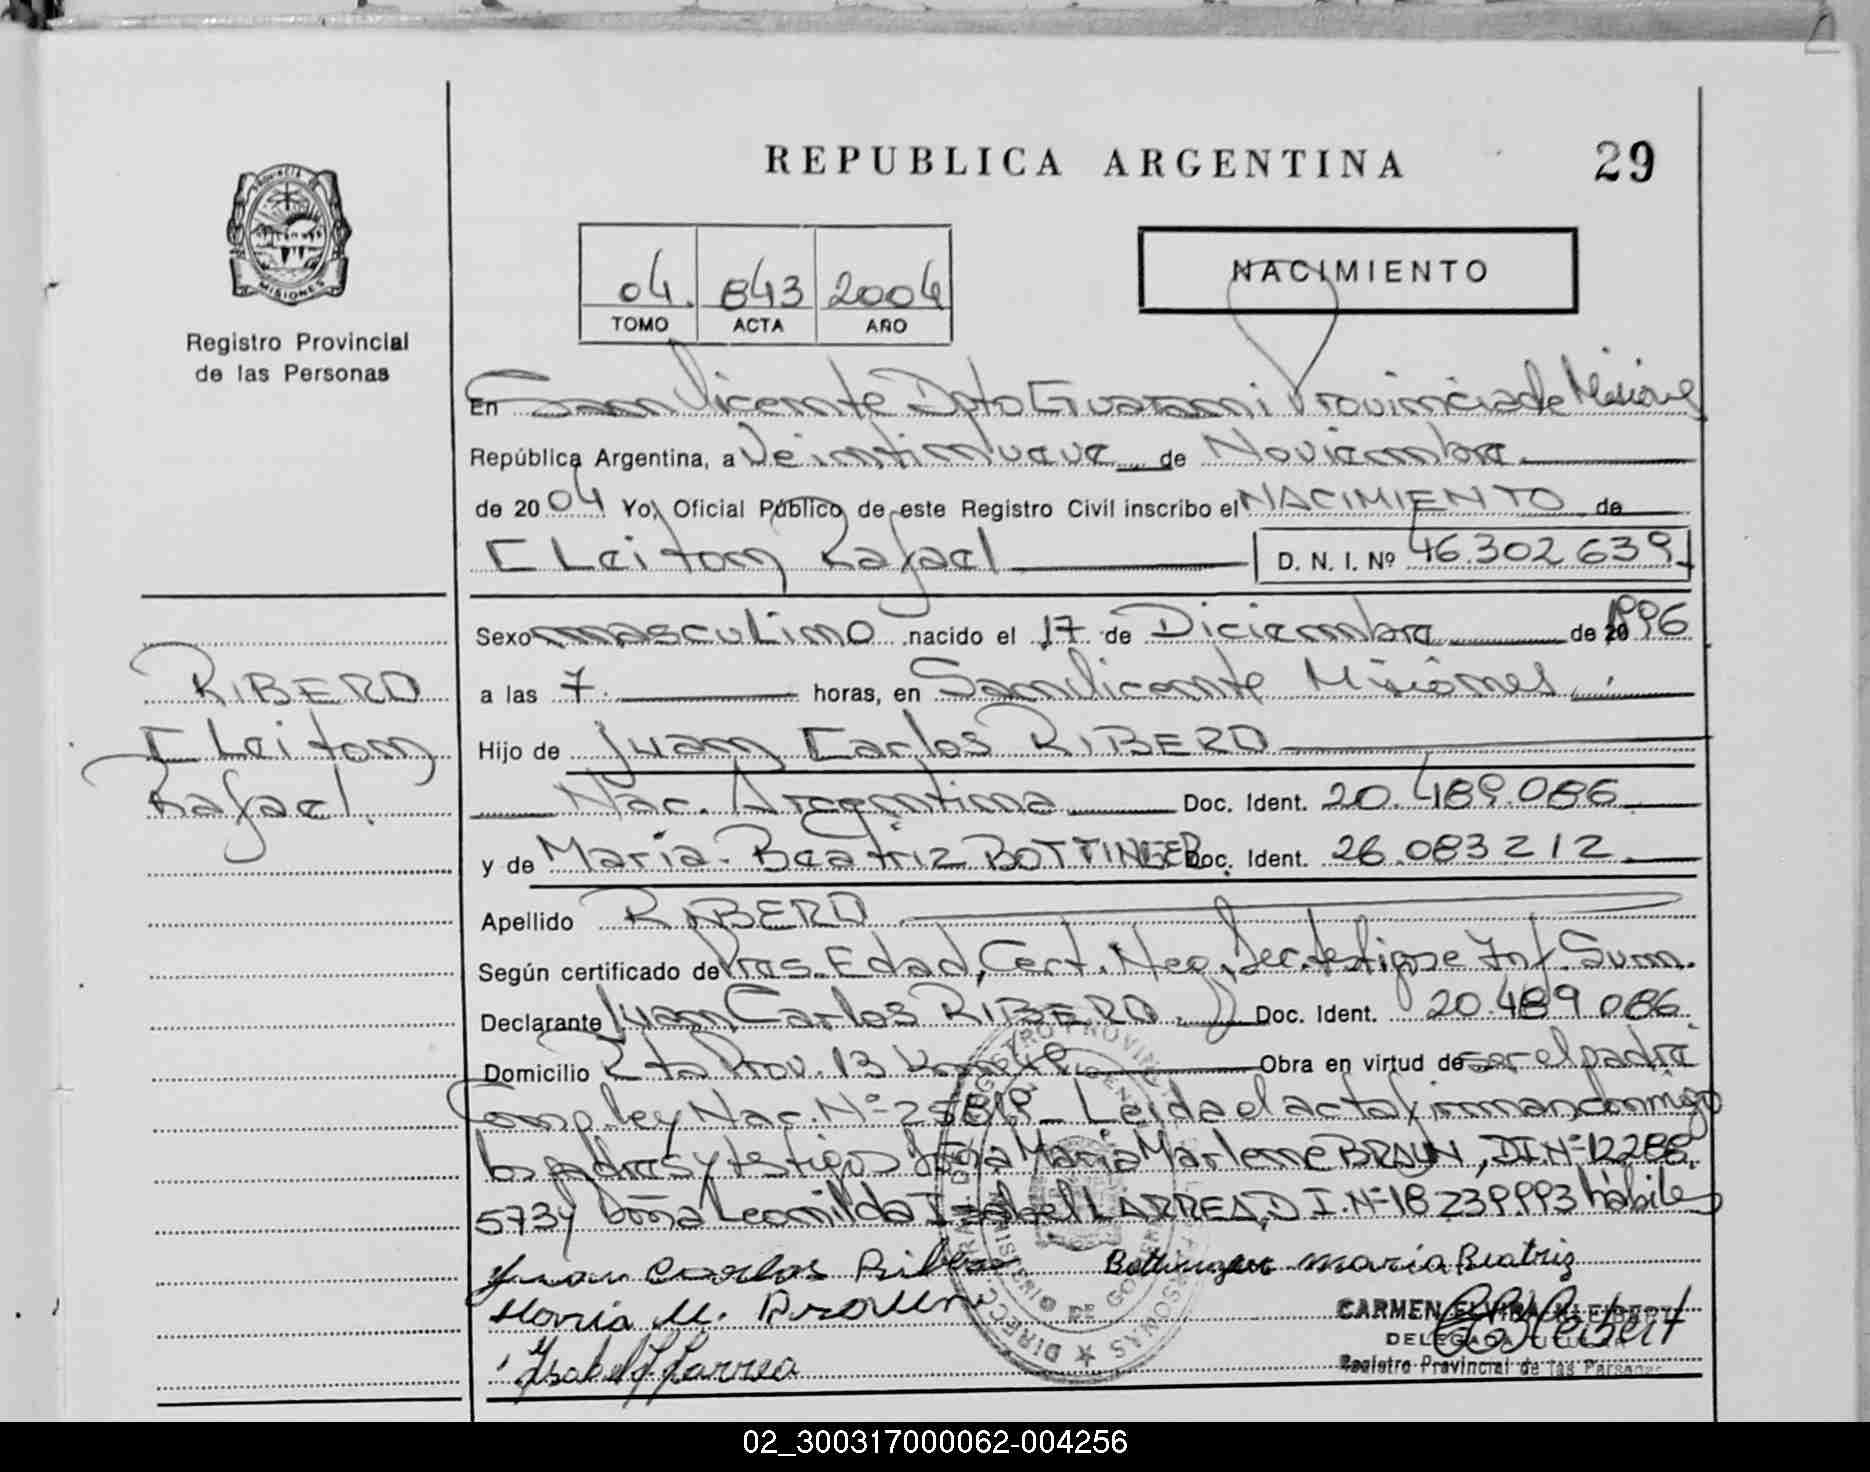 REPUBLICA ARGENTINA
29
PROVINCIA DE
MISIONES
Registro Provincial
de las Personas
04. 843 2004
TOMO ACTA AÑO
NACIMIENTO
En San Vicente Dpto Guarani Provincia de Misiones
República Argentina, a Veintinueve de Noviembre
de 2004 Yo, Oficial Público de este Registro Civil inscribo el NACIMIENTO de
CLeiton Rafael D. N. I. Nº 46.302 639
Sexo masculino nacido el 17 de Diciembre de 1996
a las 7. horas, en San Vicente Misiones
Hijo de Juan Carlos RIBERO
Nac. Argentina Doc. Ident. 20.489.086
y de Maria Beatriz BOTTINGER Doc. Ident. 26.083 212
Apellido RIBERO
Según certificado de Pres. Edad, Cert. Neg, Dec. testigos e Inf. Sum.
Declarante Juan Carlos RIBERO. Doc. Ident. 20.489 086
Domicilio Rta Prov. 13 Obra en virtud de ser el padre
Conf. ley Nac. Nº 25819_ Leida el acta firman conmigo
los padres y testigos doña Maria Marlene BRAUN, DI.Nº 12288.
573 y doña Leonilda Isabel LARREA, D I. Nº 18 239993 hàbiles
Juan Carlos Ribero Bottinger maria Beatriz
Maria M. Braun
Isabel L. Larrea
CARMEN ELVIRA KLEIBERT
DELEGADA TITULAR
Registro Provincial de las Personas
RIBERO
CLeiton
Rafael.
02_300317000062-004256